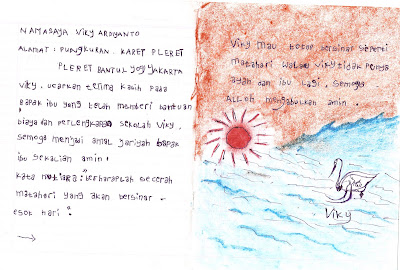 NAMASAYA VIKY ARDIYANTO
ALAMAT : PUNGKURAN. KARET PLERET
PLERET BANTUL YOGYAKARTA
Viky. ucapkan terima kasih pada
Bapak ibu yang telah memberi bantuan
biaya dan perlengkapan sekolah Viky.
Semoga menjadi amal jariyah bapak
ibu sekalian amin!
kata mutiara: "berharaplah secerah
matahari yang akan bersinar.
esok hari".
Viky mau tetap bersinar seperti
matahari walau Viky tidak punya
ayah dan ibu lagi. Semoga
ALLOH mengabulkan amin.
Viky